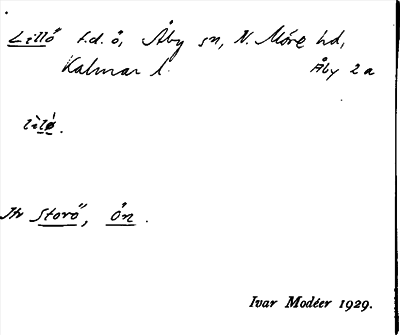 Lillö t.d. ö, Åby sn, N. Möre hd,
Kalmar l.
Åby 2a
lìlǿ.
Jfr Storö, Ön.
Ivar Modéer 1929.